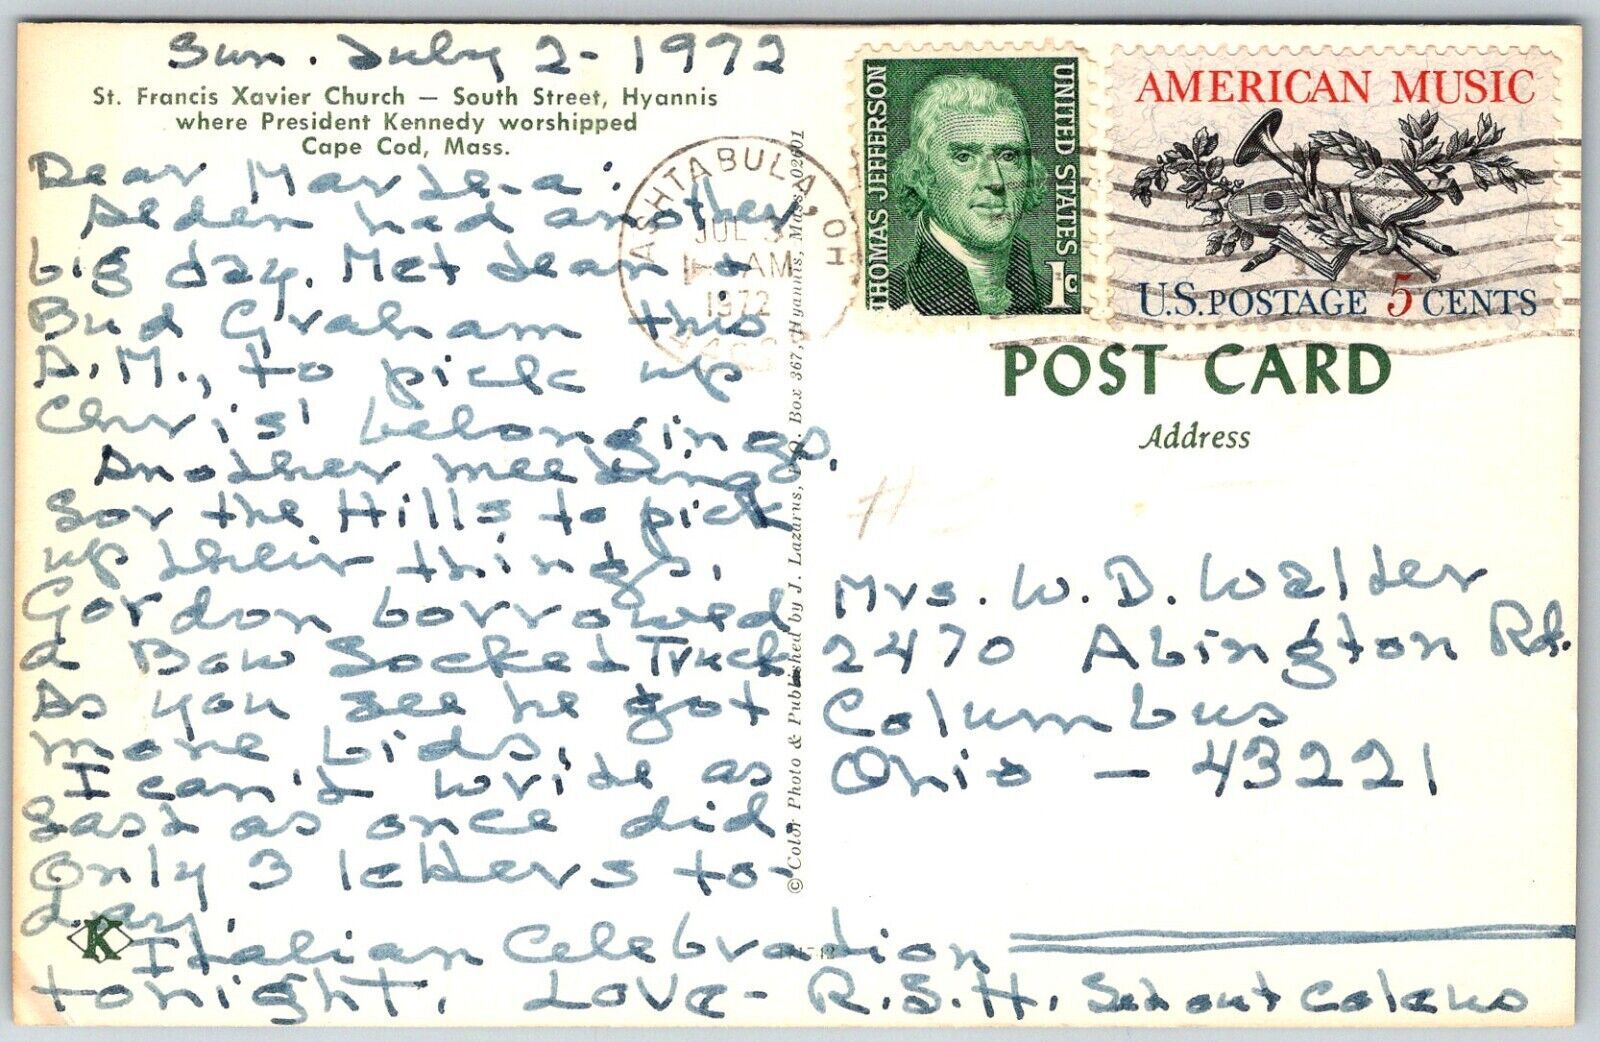 Sun. July 2-1972
St. Francis Xavier Church — South Street, Hyannis
where President Kennedy worshipped
Cape Cod, Mass.
Dear Martha:
Alden had another
big day. Met Jean &
Bud Graham this
A.M., to pick up
Chris' belongings.
Another meeting
for the Hills to pick
up their things.
Gordon borrowed
a Bow Socket Truck
As you see he got
more bids.
I can't write as
fast as once did.
Only 3 letters to-
day.
Italian Celebration
tonight. Love - R.S.H.
K
© Color Photo & Published by J. Lazarus, P.O. Box 367, Hyannis, Mass. 02601
ASHTABULA, OH
JUL 3
AM
1972
THOMAS JEFFERSON
UNITED STATES
1c
AMERICAN MUSIC
U.S. POSTAGE 5 CENTS
POST CARD
Address
Mrs. W. D. Walter
2470 Abington Rd.
Columbus
Ohio - 43221